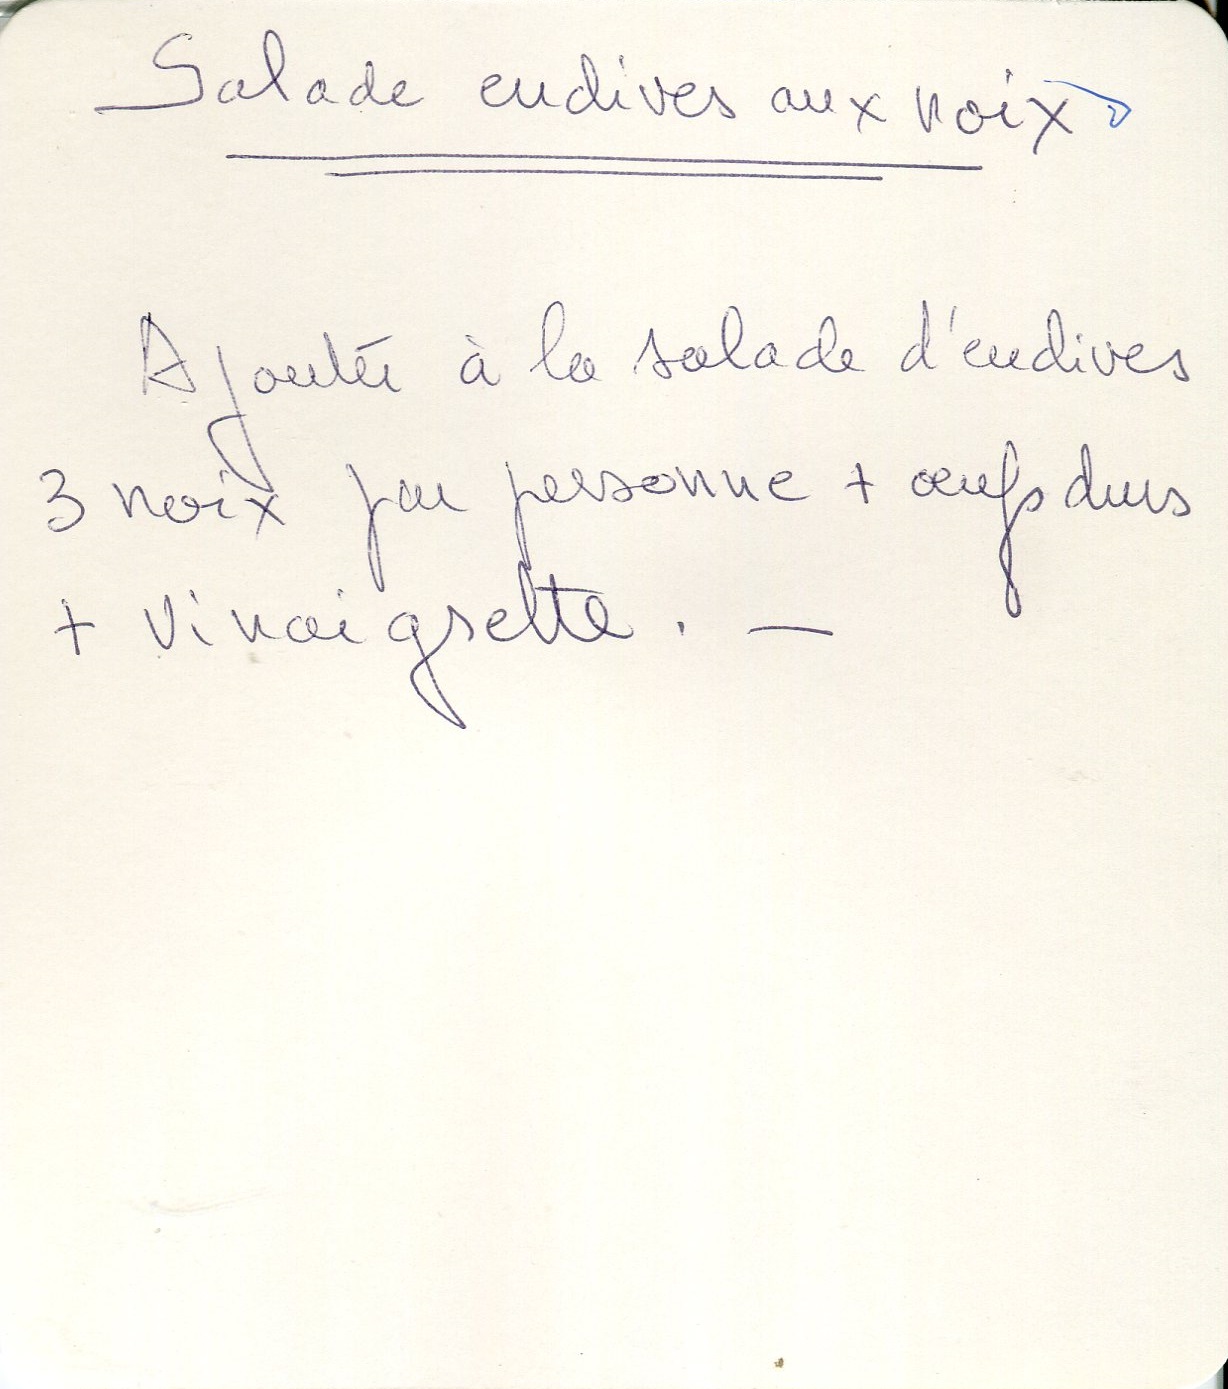 Salade endives aux noix
Ajouter à la salade d'endives
3 noix par personne + œufs durs
+ vinaigrette. —